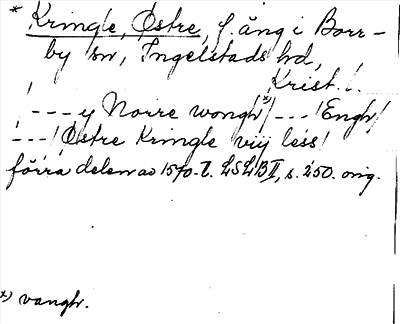 * Kringle, Östre, f. äng i Borr-
by sn, Ingelstads hd,
Krist. l.
/ --- y Norre wongh*)/ --- / Engh/
--- / Östre Kringle vij less/
förra delen av 1570-t. LSLB II, s. 250. orig.
*) vangh.